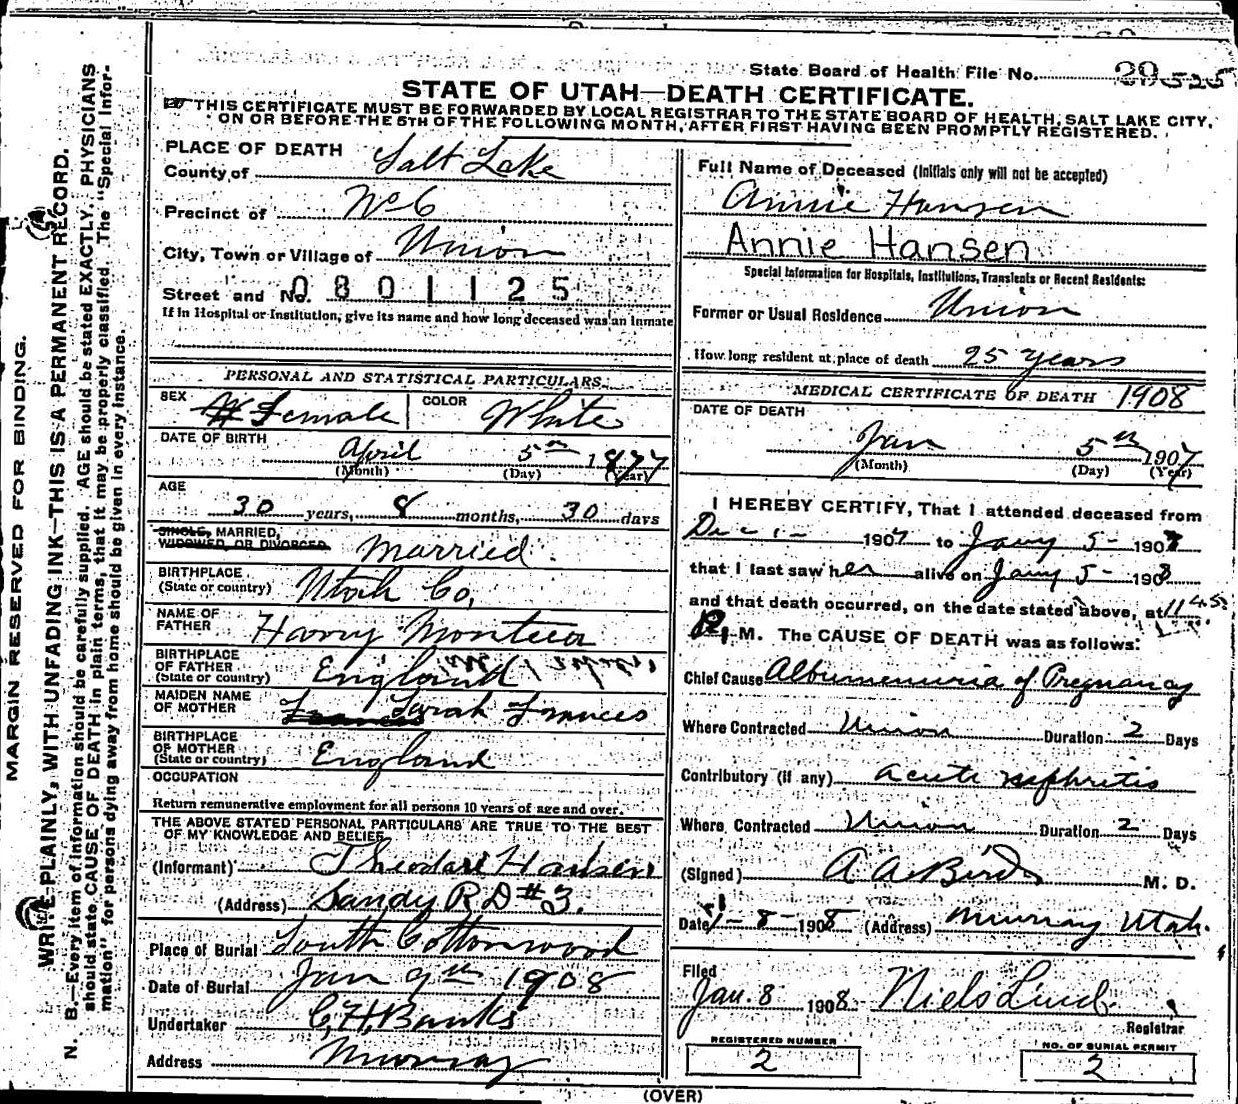 State Board of Health File No. 29 525
STATE OF UTAH—DEATH CERTIFICATE.
THIS CERTIFICATE MUST BE FORWARDED BY LOCAL REGISTRAR TO THE STATE BOARD OF HEALTH, SALT LAKE CITY,
ON OR BEFORE THE 5TH OF THE FOLLOWING MONTH, AFTER FIRST HAVING BEEN PROMPTLY REGISTERED.
MARGIN RESERVED FOR BINDING.
WRITE PLAINLY, WITH UNFADING INK—THIS IS A PERMANENT RECORD.
N. B.—Every item of information should be carefully supplied. AGE should be stated EXACTLY. PHYSICIANS
should state CAUSE OF DEATH in plain terms, that it may be properly classified. The "Special Infor-
mation" for persons dying away from home should be given in every instance.
PLACE OF DEATH
County of Salt Lake
Precinct of No 6
City, Town or Village of Union
Street and No. 0801125
If in Hospital or Institution, give its name and how long deceased was an inmate
PERSONAL AND STATISTICAL PARTICULARS.
SEX Female COLOR White
DATE OF BIRTH April 5th 1877
(Month) (Day) (Year)
AGE
30 years, 8 months, 30 days
SINGLE, MARRIED,
WIDOWED, OR DIVORCED Married.
BIRTHPLACE
(State or country) Utah Co,
NAME OF
FATHER Harry
BIRTHPLACE
OF FATHER
(State or country) England
MAIDEN NAME
OF MOTHER Frances Sarah Frances
BIRTHPLACE
OF MOTHER
(State or country) England
OCCUPATION
Return remunerative employment for all persons 10 years of age and over.
THE ABOVE STATED PERSONAL PARTICULARS ARE TRUE TO THE BEST
OF MY KNOWLEDGE AND BELIEF.
(Informant) Theodore Hansen
(Address) Sandy R D #3.
Place of Burial South Cottonwood
Date of Burial Jan 9th 1908
Undertaker C. H. Banks
Address Murray
Full Name of Deceased (Initials only will not be accepted)
Annie Hansen
Annie Hansen
Special Information for Hospitals, Institutions, Transients or Recent Residents:
Former or Usual Residence Union
How long resident at place of death 25 years
MEDICAL CERTIFICATE OF DEATH 1908
DATE OF DEATH
Jan 5th 1907
(Month) (Day) (Year)
I HEREBY CERTIFY, That I attended deceased from
Dec 1- 1907 to Jany 5- 1908
that I last saw her alive on Jany 5- 1908
and that death occurred, on the date stated above, at 11 45
P. M. The CAUSE OF DEATH was as follows:
Chief Cause Albumenuria of Pregnancy
Where Contracted Union Duration 2 Days
Contributory (if any) acute nephritis
Where Contracted Union Duration 2 Days
(Signed) A A Bird M. D.
Date 1-8-1908 (Address) Murray Utah.
Filed
Jan. 8 1908 Niels Lind
Registrar
REGISTERED NUMBER
2
NO. OF BURIAL PERMIT
2
(OVER)